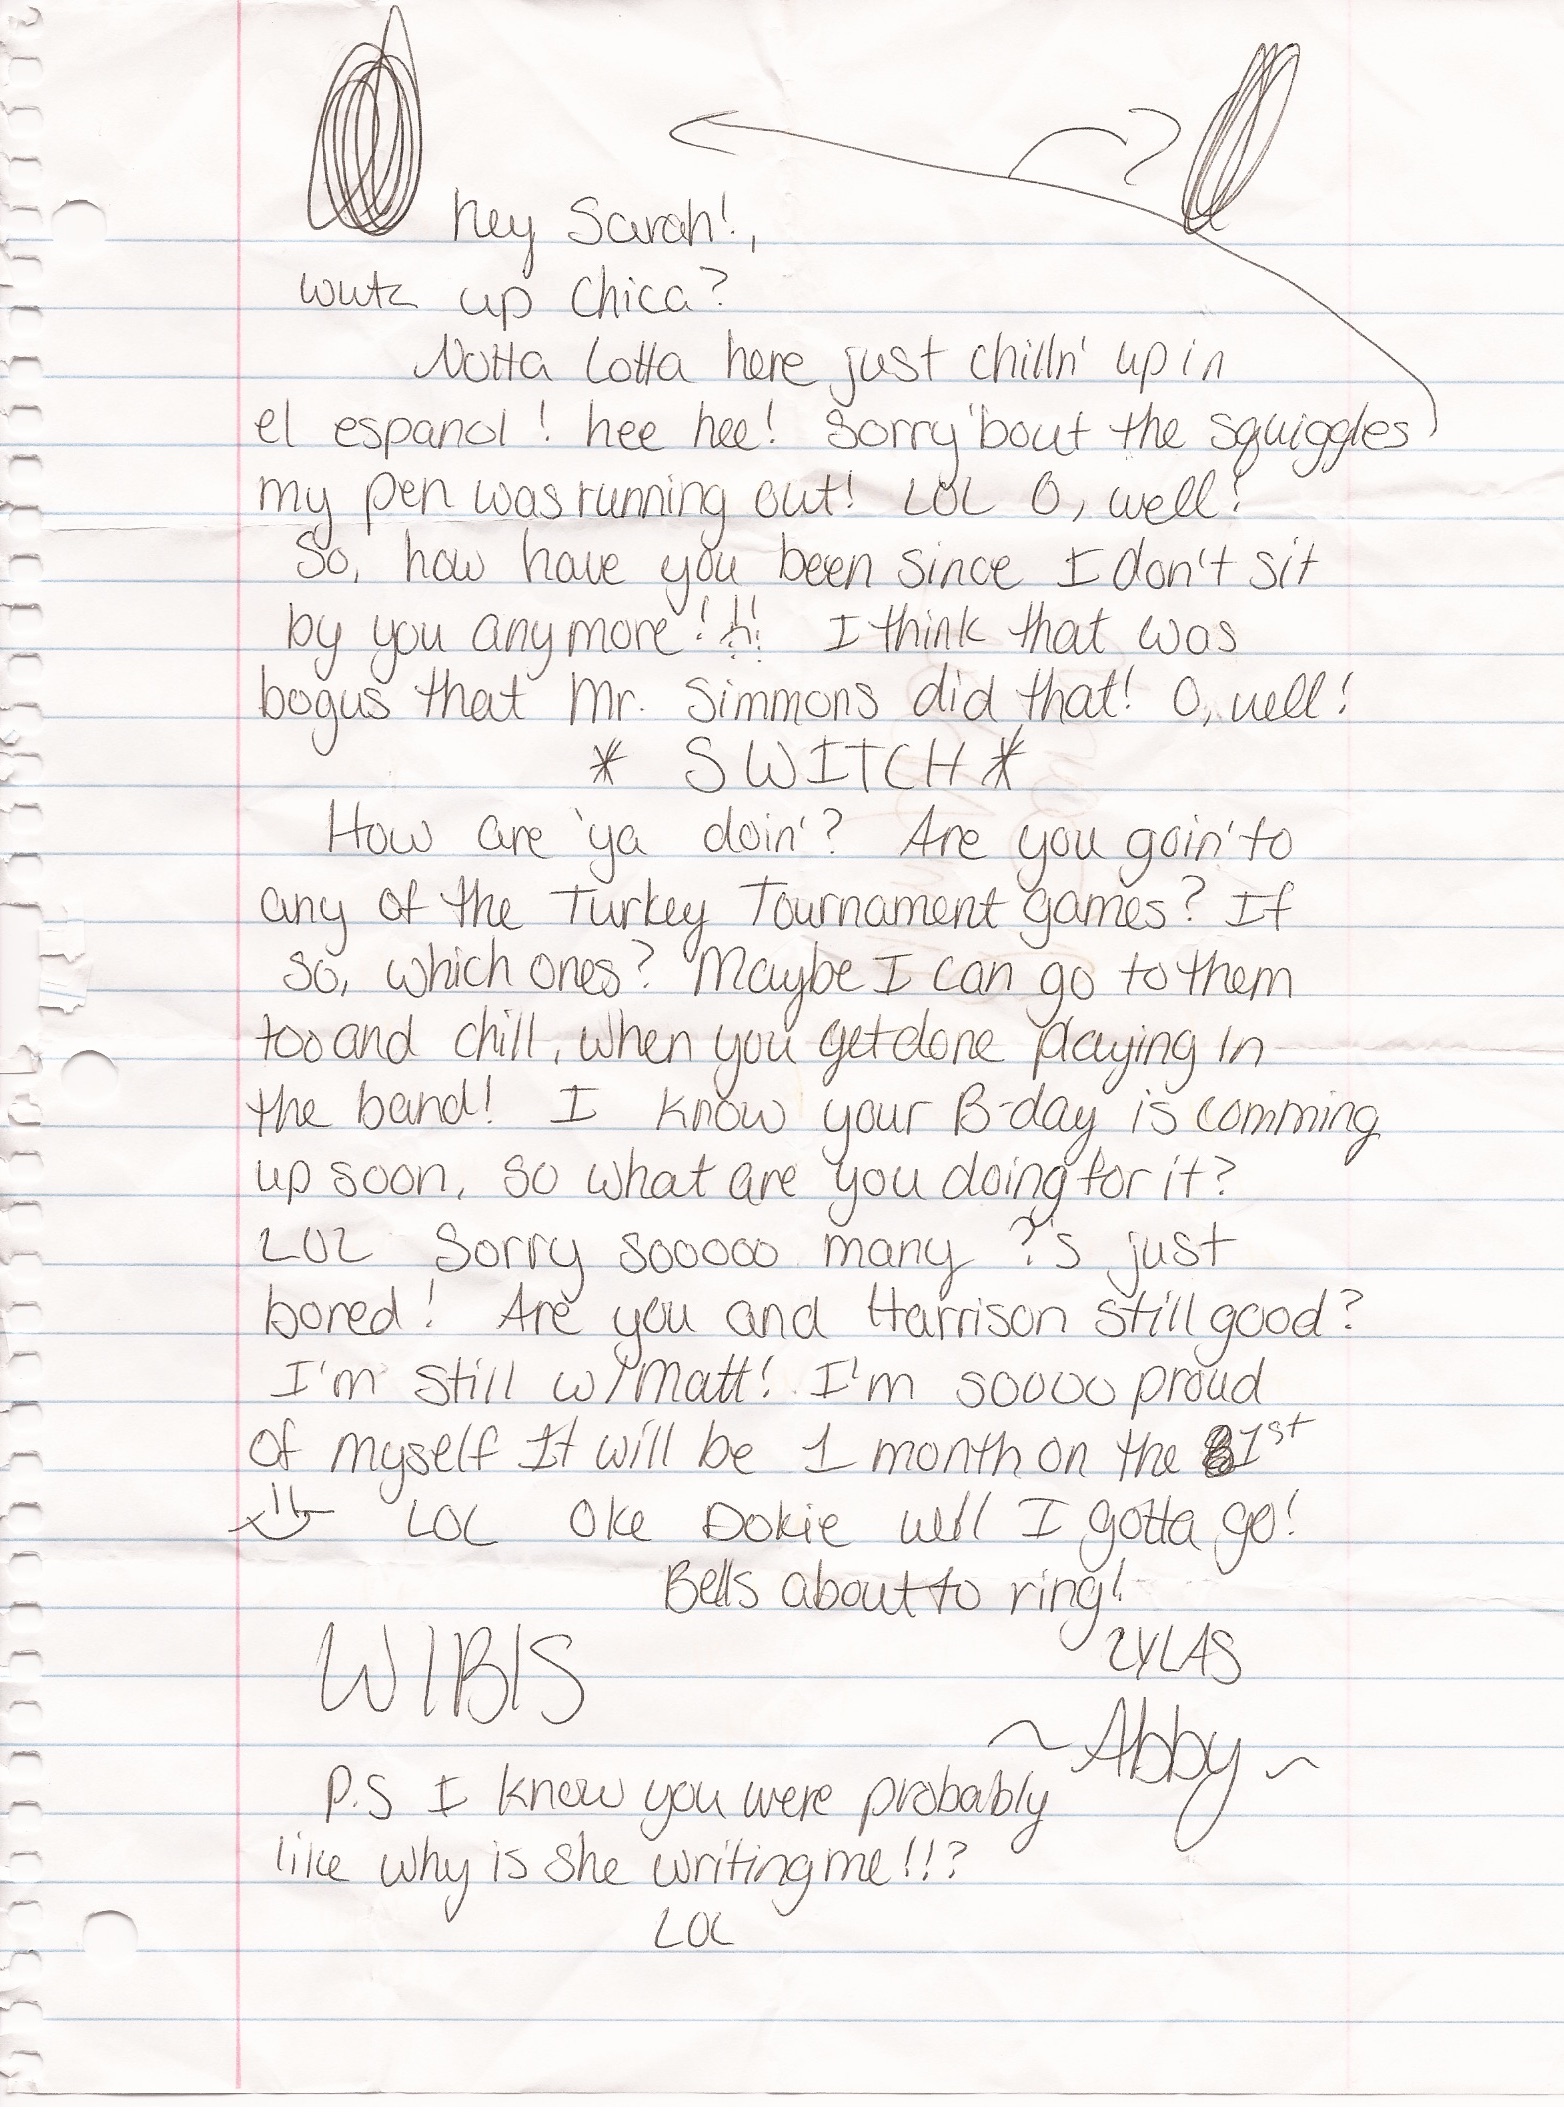 hey Sarah!,
wutz up Chica?
Notta Lotta here just chilln' up in
el espanol! hee hee! Sorry 'bout the squiggles
my pen was running out! LOL O, well!
So, how have you been since I don't sit
by you anymore!!! I think that was
bogus that Mr. Simmons did that! O, well!
* SWITCH *
How are 'ya doin'? Are you goin' to
any of the Turkey Tournament games? If
so, which ones? Maybe I can go to them
too and chill, when you get done playing in
the band! I know your B-day is comming
up soon, so what are you doing for it?
LOL Sorry sooooo many ?'s just
bored! Are you and Harrison still good?
I'm still w/ Matt! I'm soooo proud
of myself It will be 1 month on the 1st
LOL Oke Dokie well I gotta go!
Bells about to ring!
W/B/S
LYLAS
~Abby~
P.S I know you were probably
like why is she writing me!!?
LOL